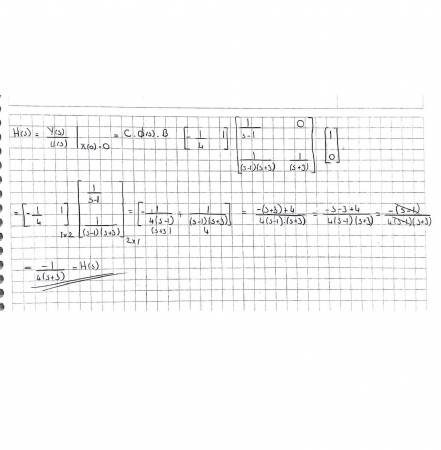 H(s) = Y(s)/U(s) | x(0)=0 = C.Φ(s).B [-1/4 1] [1/(s-1) 0; 1/((s-1)(s+3)) 1/(s+3)] [1; 0]
= [-1/4 1]1x2 [1/(s-1); 1/((s-1)(s+3))]2x1 = [-1/(4(s-1)) (s+3) + 1/((s-1)(s+3)) 4] = (-(s+3)+4)/(4(s-1).(s+3)) = (-s-3+4)/(4(s-1)(s+3)) = -(s-1)/(4(s-1)(s+3))
= -1/(4(s+3)) = H(s)